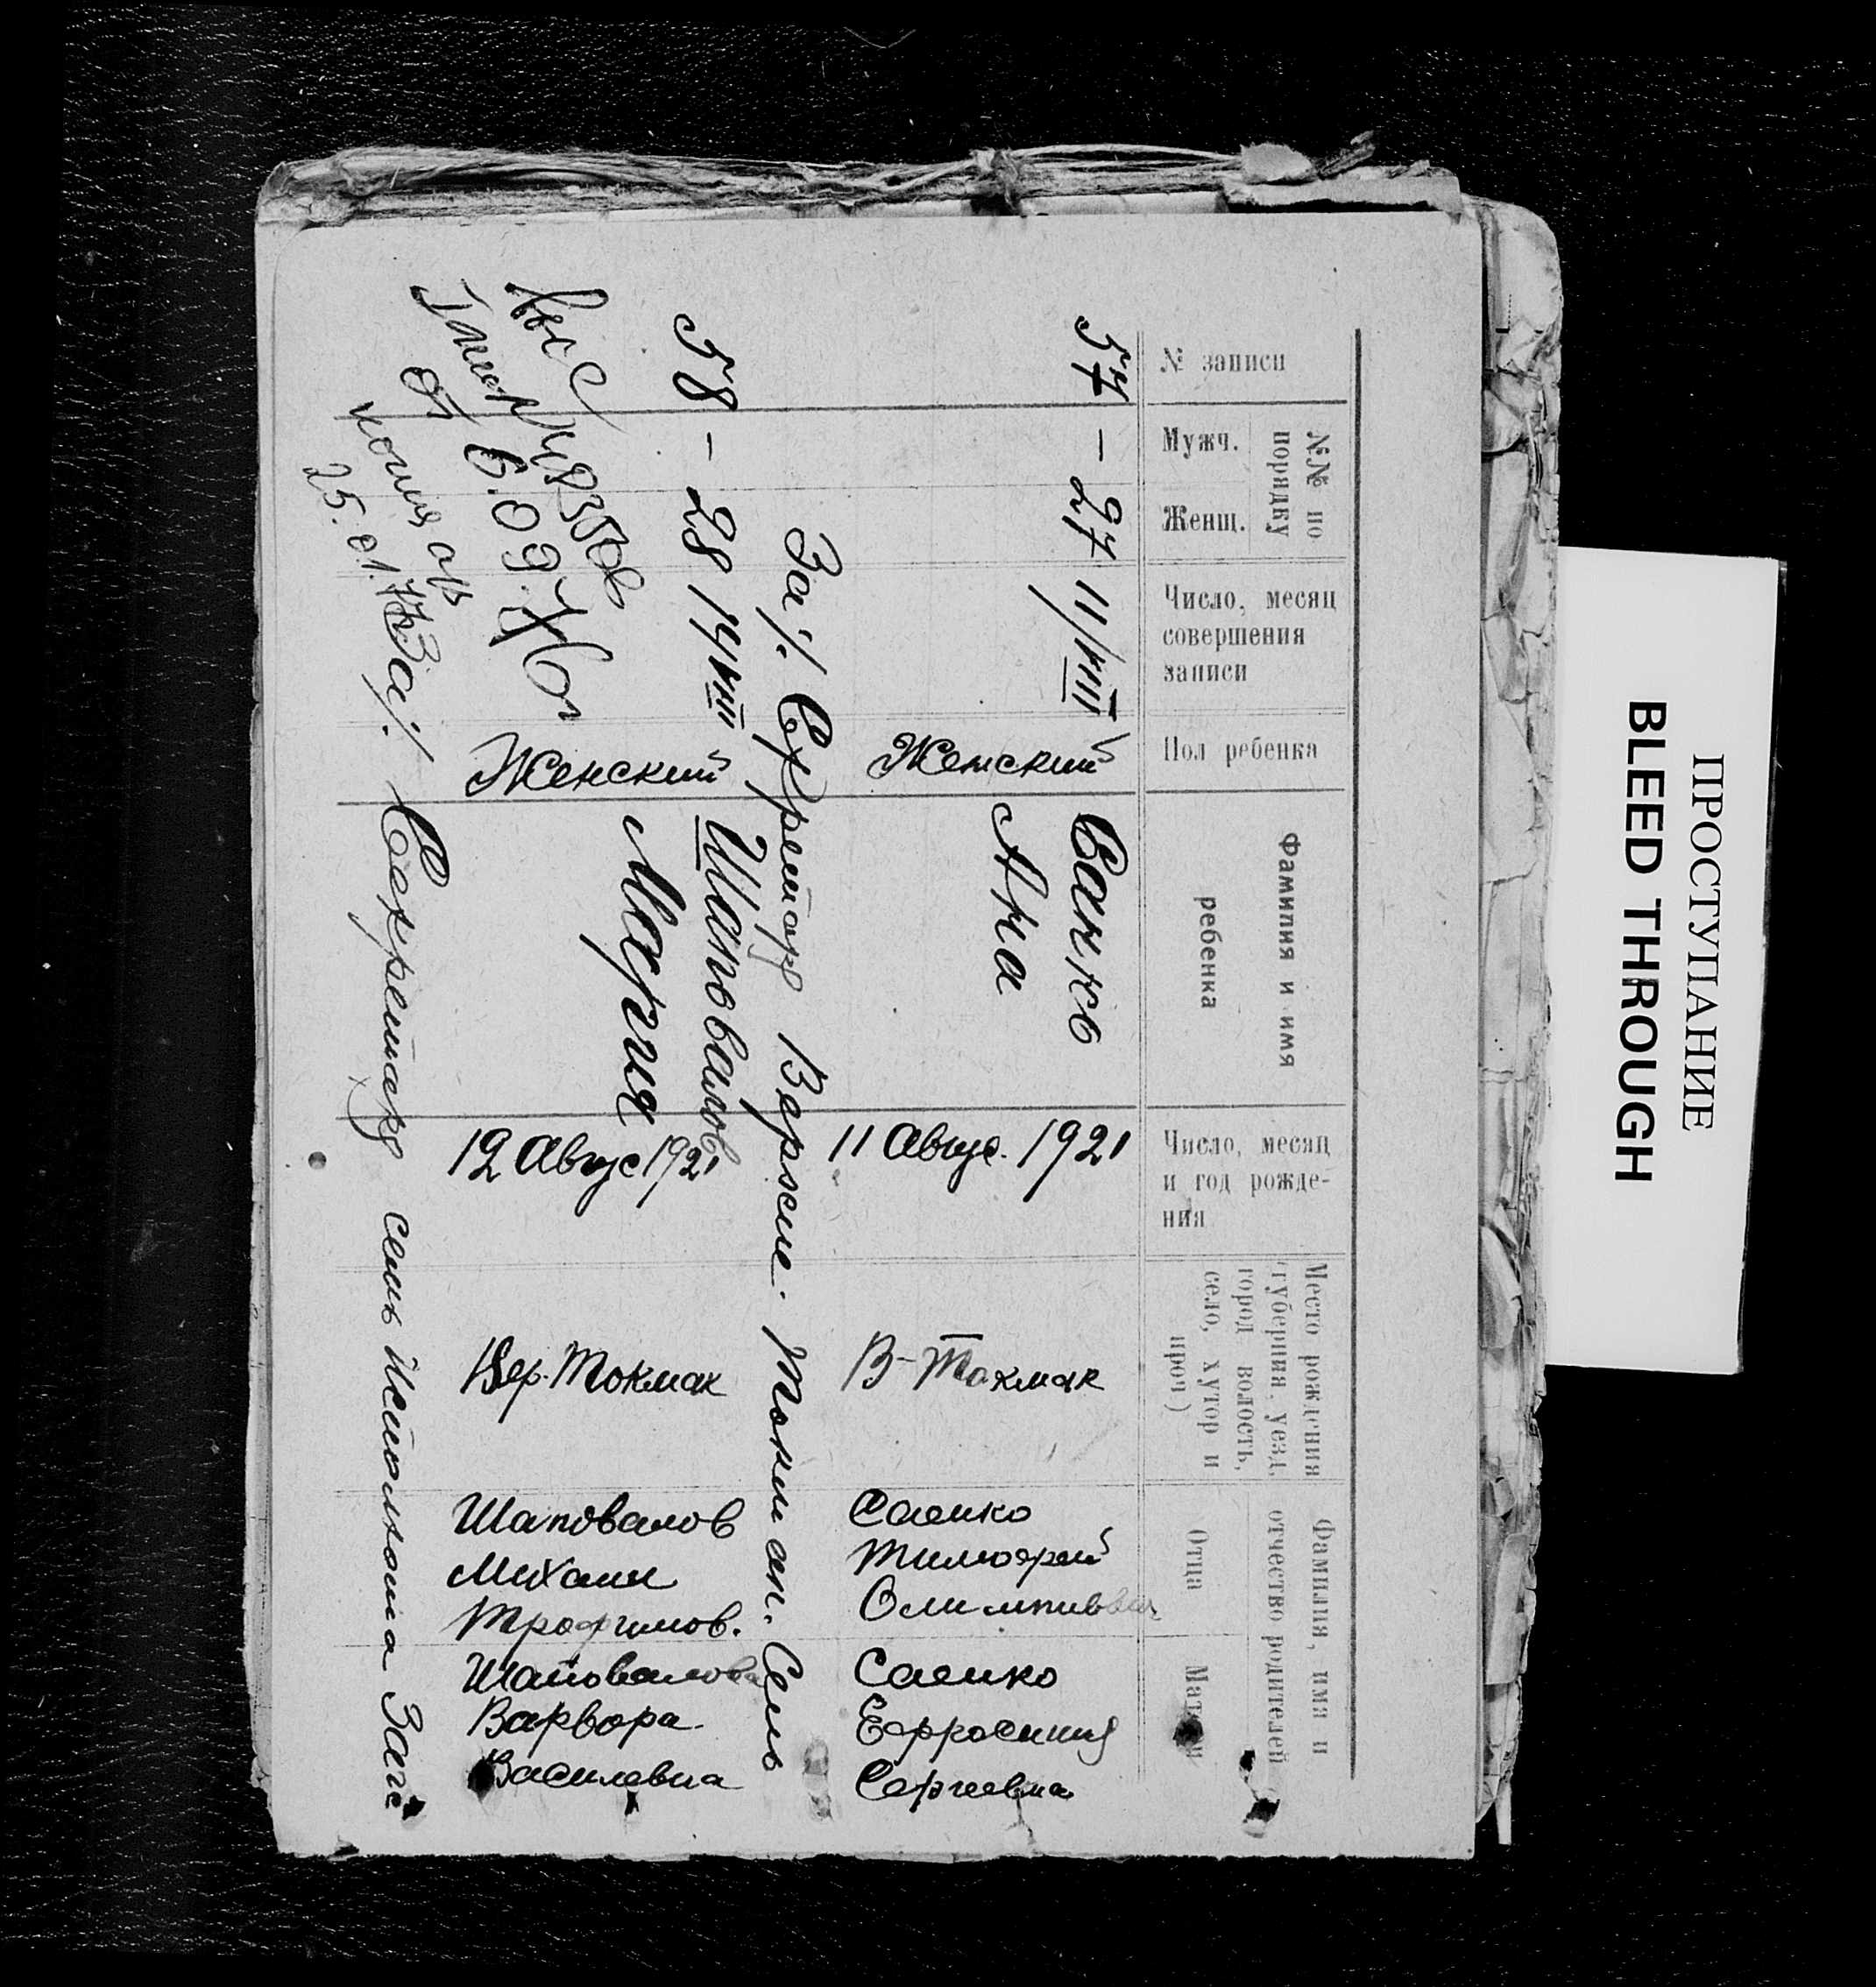 № записи
№№ по
порядку
Мужч.
Женщ.
Число, месяц
совершения
записи
Пол ребенка
Фамилия и имя
ребенка
Число, месяц
и год рожде-
ния
Место рождения
(губерния, уезд,
город волость,
село, хутор и
проч)
Фамилия, имя и
отчество родителей
Отца
Матери
57 — 27 11/VIII
Женский
Саенко
Анна
11 Авгус. 1921
В-Токмак
Саенко
Тимофей
Саенко
Ефросиния
Сергеевна
За /. Секретарь Верхне. Токмак. Сель
58 — 28 14 VIII
Женский
Шаповалов
Мария
12 Авгус 1921
Вер. Токмак
Шаповалов
Михаил
Трофимов.
Шаповалова
Варвора
Василевна
6.09.76г
копия
25.01.
За/. Секретарь сель Исполкома Загс
ПРОСТУПАНИЕ
BLEED THROUGH